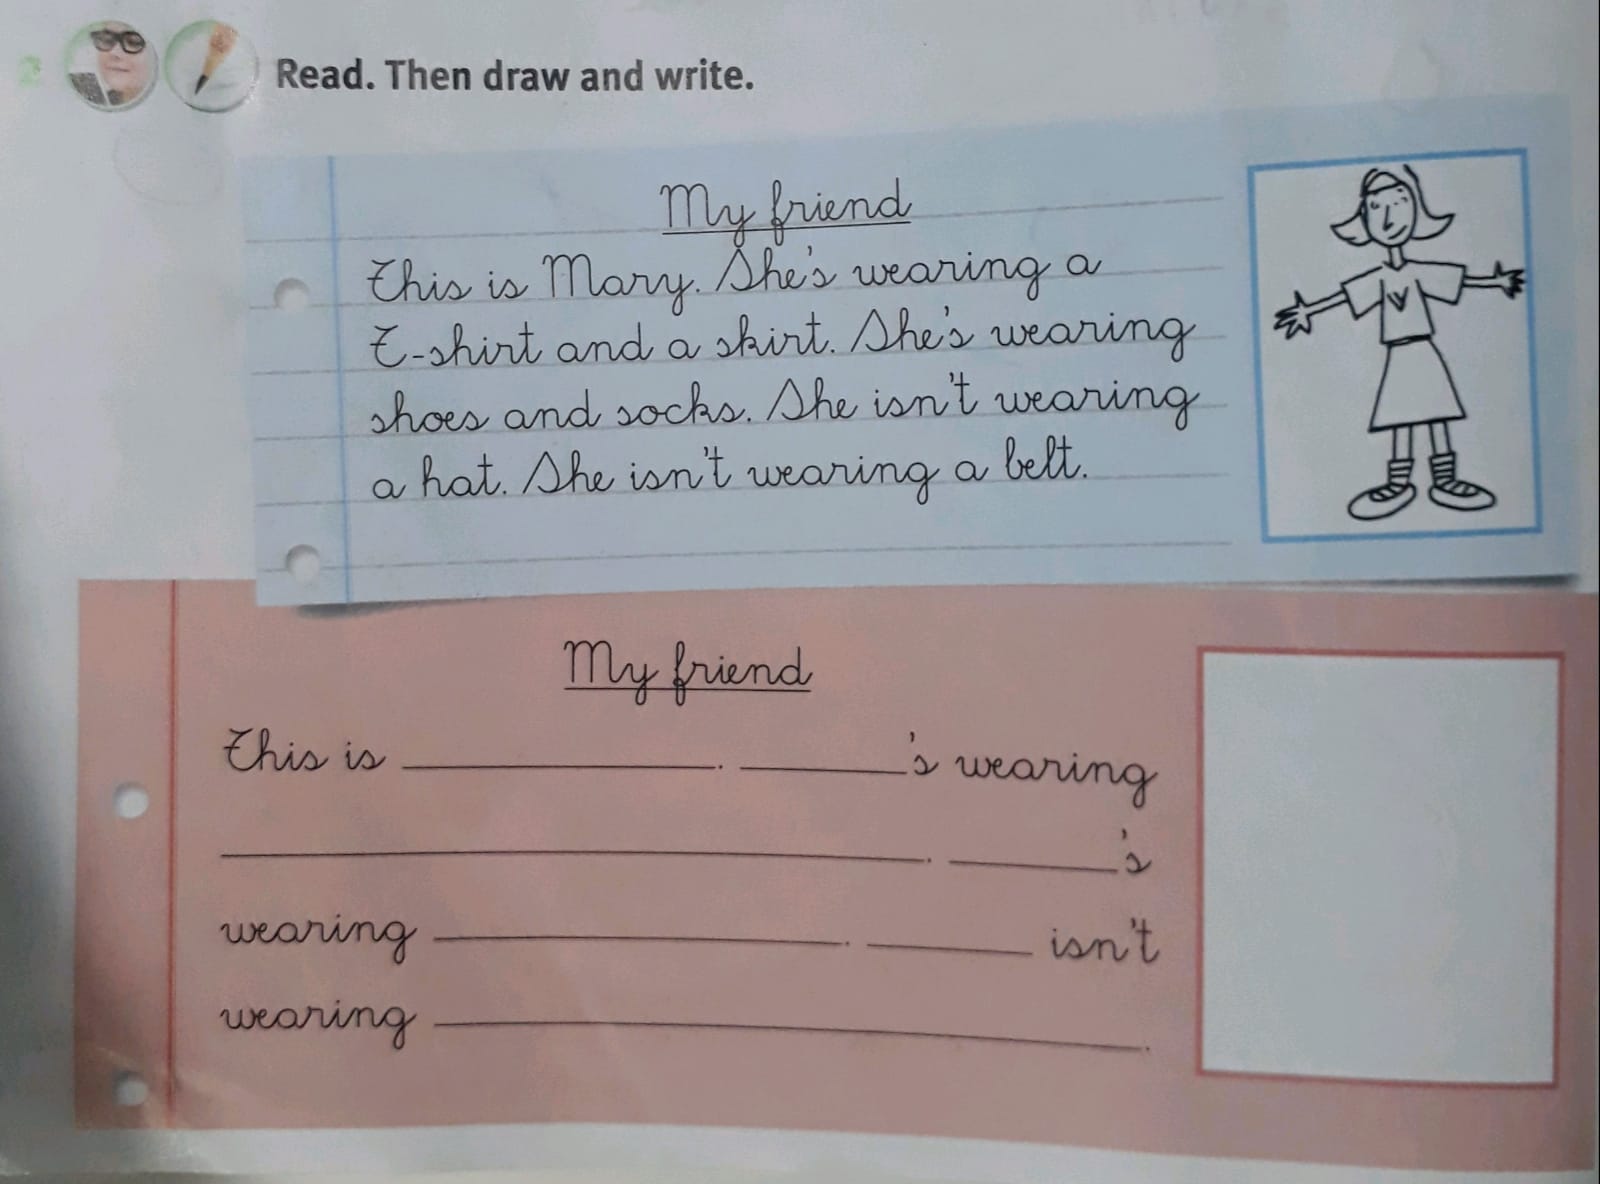 2 Read. Then draw and write.
My friend
This is Mary. She's wearing a
T-shirt and a skirt. She's wearing
shoes and socks. She isn't wearing
a hat. She isn't wearing a belt.
My friend
This is ____________. ________'s wearing
____________________________. ________'s
wearing ________________. ________ isn't
wearing ____________________________.